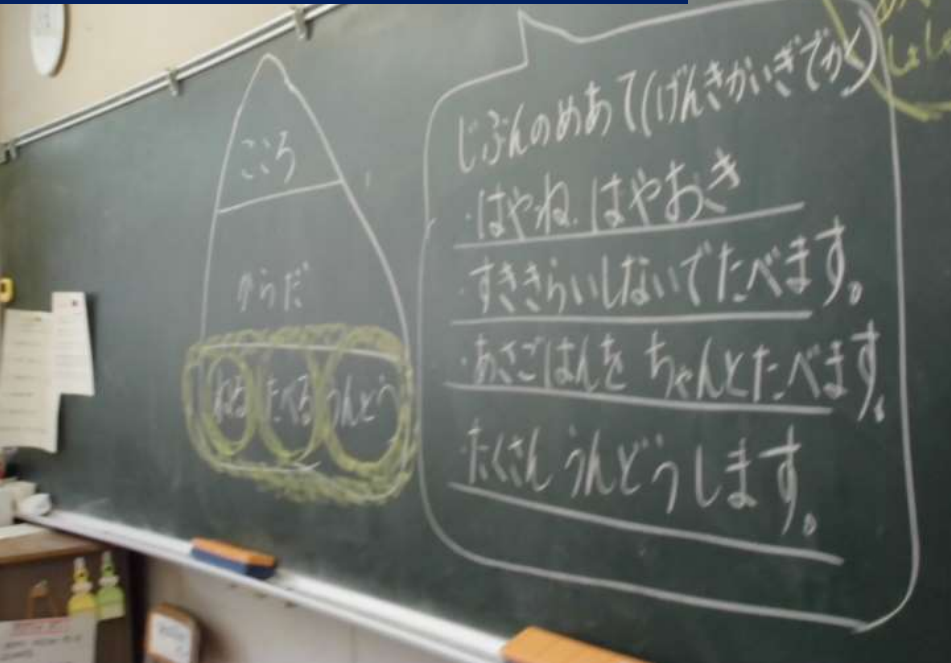 こころ
からだ
ねる たべる うんどう
じぶんのめあて(げんきかいぎでかく)
・はやね、はやおき
・すききらいしないでたべます。
・あさごはんを ちゃんとたべます。
・たくさん うんどうします。